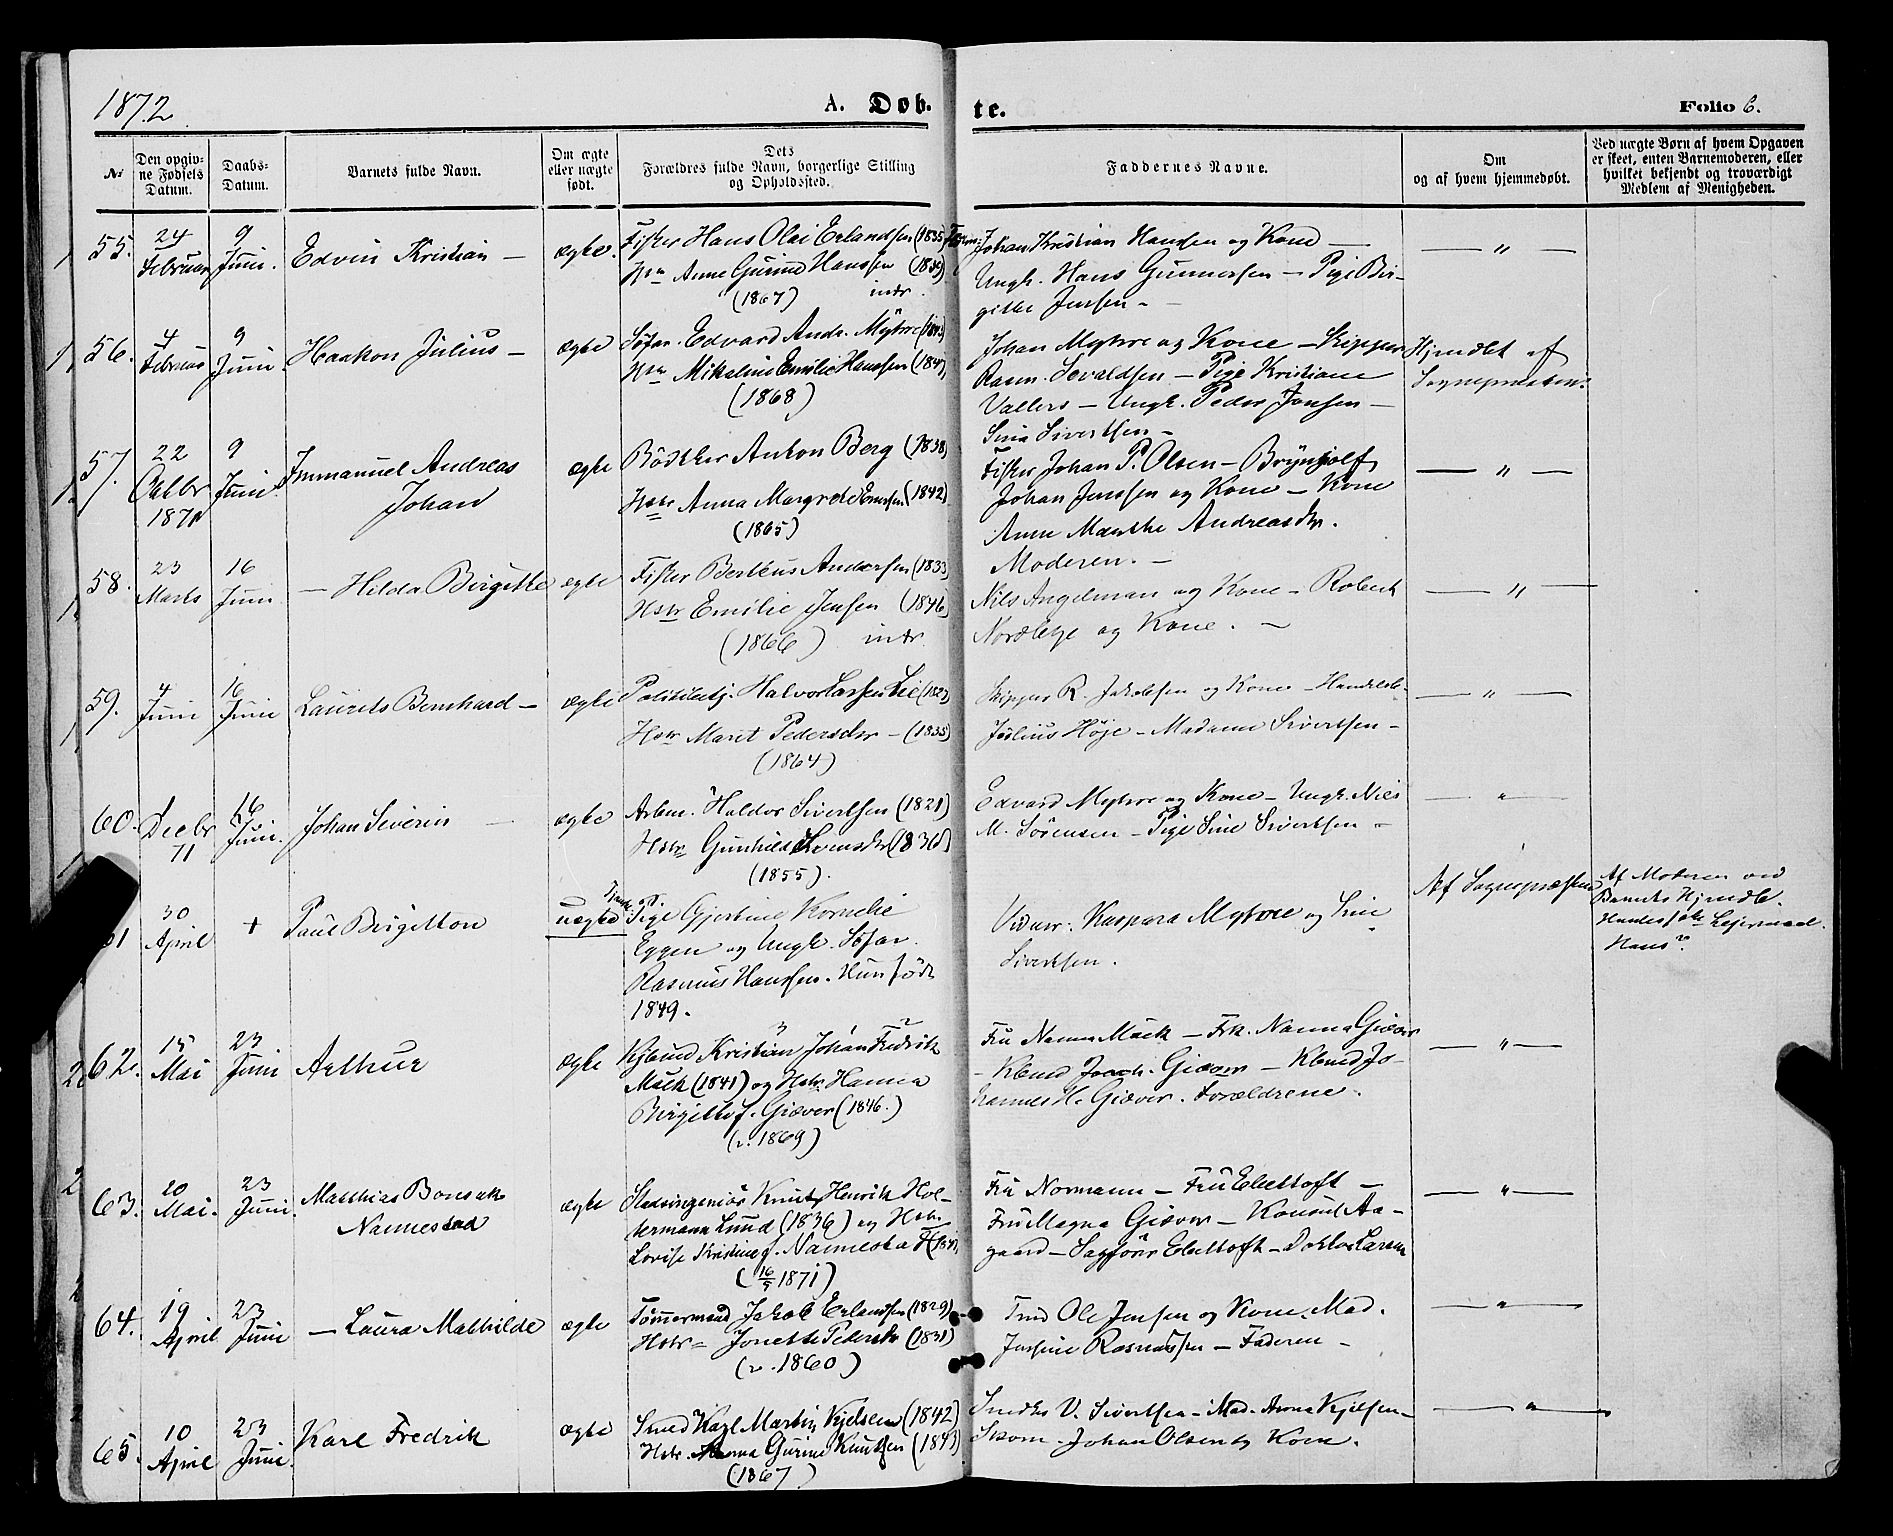 1872
A. Døb.
te.
Folio 6.
№
Den opgiv-
ne Fødsels
Datum.
Daabs-
Datum.
Barnets fulde Navn.
Om ægte
eller uægte
født.
Dets
Forældres fulde Navn, borgerlige Stilling
og Opholdssted.
Faddernes Navne.
Om
og af hvem hjemmedøbt.
Ved uægte Børn af hvem Opgaven
er skeet, enten Barnemoderen, eller
hvilket bekjendt og troværdigt
Medlem af Menigheden.
55. 24 Februar 9 Juni. Edvin Kristian — ægte. Fisker Hans Olai Erlandsen (1835)
Anne Gurine Hanssen
(1867) indr.
Johan Kristian Hansen og Kone —
Ungk. Hans Gunnersen — Pige Bir-
gitte Jensen —
— " —
56. 4 Februar 9 Juni. Haakon Julius — ægte Edvard Andr. Myhre
Mikaline Emilie Hanssen
(1868)
Johan Myhre og Kone — Skipper
Rasm. Sevaldsen — Pige Kristiane
Vallers — Ungk. Peder Jensen —
Sina Sivertsen —
Hjmdbt af
Sognepresten.
57. 22 Octbr 1871 9 Juni. Immanuel Andreas
Johan
ægte Bödtker Anton Berg (1838)
Hstr Anna Margrete (1842)
(1865)
Fisker Johan P. Olsen — Brynjolf
Johan Jenssen og Kone — Kone
Anne Marthe Andreasdtr.
Moderen. —
— " —
58. 23 Marts 16 Juni — Hilda Birgitte ægte Fisker Berteus Andersen (1833)
Hstr Emilie Jensen (1846)
(1866) indr
Nils Angelman og Kone — Robert
og Kone. —
— " —
59. 4 Juni 16 Juni Laurits Bernhard — ægte Politibetj. Halvor Larsen Lie
Hstr Marit Pedersdtr — (1835)
(1864)
Skipper R. Jakobsen og Kone —
Julius Høje — Madame Sivertsen —
— " —
60. Decbr 71 16 Juni. Johan Severin — ægte Arbm. Haldor Sivertsen (1821)
Hstr Gunhild
(1855).
Edvard Myhre og Kone — Ungk. Nils
M. Sørensen — Pige Sine Sivertsen —
— " —
61 30 April + Paul Birgitton uægte Pige Gjertine Kornelie
Eggen og Ungk. Søfar.
Rasmus Hanssen. Hun født
1849.
Kaspara Myhre og Sine
Sivertsen.
Af Sognepræsten
Af Moderen ved
Barnets Hjmdb.
Hendes 1ste Leiermaal.
Hans 2.
62. 15 Mai 23 Juni Arthur ægte Kjbmd Kristian Johan Fredrik
Mack (1841) og Hstr. Hanna
Birgitte f. Giæver (1846.)
(v. 1869)
Fru Nanna Mack — Frk. Nanna Giæver
— Kbmd Joach. Giæver — Kbmd Jo-
hannes H. Giæver. Forældrene.
— " —
63. 20 Mai. 23 Juni. Matthias Bonsak
Nannestad
ægte Stadsingeniör Knut Henrik Hol-
termann Lund (1836) og Hstr.
Lovise Kristine f. Nannestad
(16/5 1871)
Fru Normann — Fru Ebeltoft —
Fru Magna Giæver — Konsul Aa-
gaard — Sagfører Ebeltoft — Doktor Larsen
— " —
64. 19 April 23 Juni — Laura Mathilde ægte Tömmermand Jakob Erlandsen (1829)
Hstr Jonette Pedersdtr (1831)
(v. 1860)
Tmd Ole Jensen og Kone. Mad.
Jensine Rasmussen — Faderen —
— " —
65. 10 April 23 Juni. Karl Fredrik ægte Smed Karl Martin Kjelsen (1842)
Hstr. Anna Gurine Knutsen (1843)
(1867)
V. Sivertsen — Mad. Anna Kjelsen —
Skom. Johan Olsen og Kone.
— " —